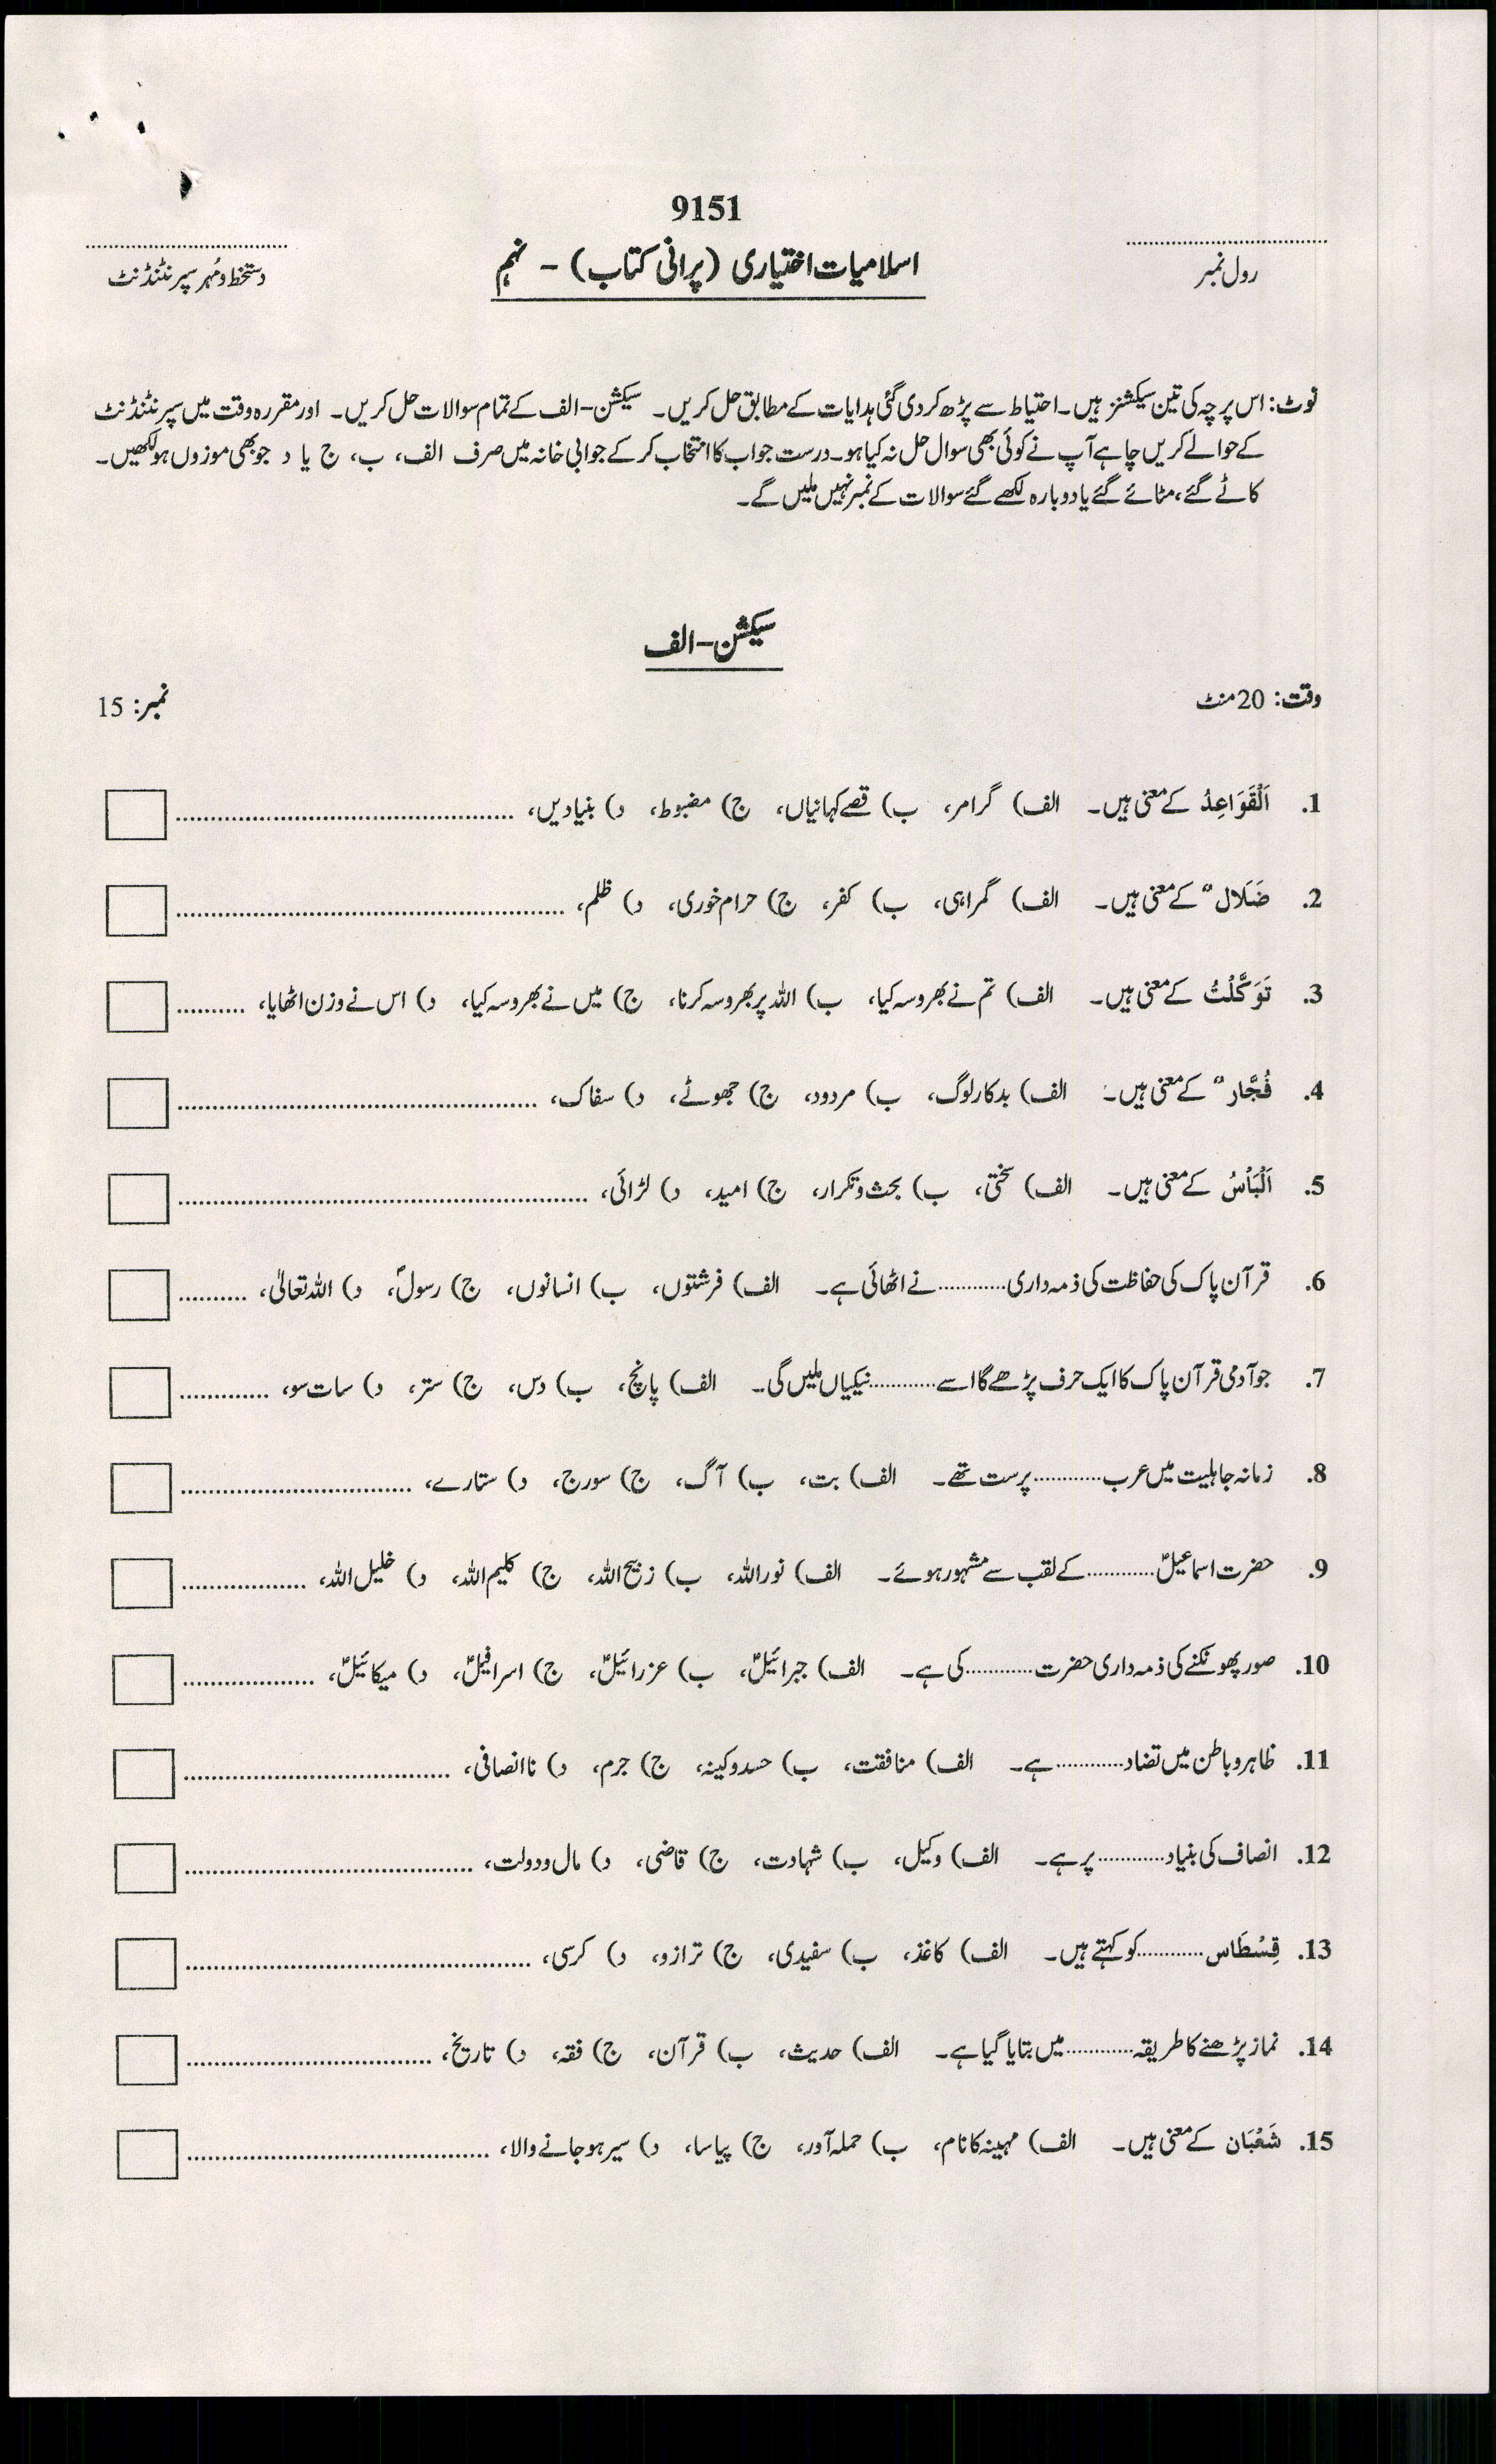 9151
رول نمبر
اسلامیات اختیاری (پرانی کتاب) - نہم
دستخط و مُہر سپرنٹنڈنٹ
نوٹ: اس پرچہ کی تین سیکشنز ہیں۔ احتیاط سے پڑھ کر دی گئی ہدایات کے مطابق حل کریں۔ سیکشن-الف کے تمام سوالات حل کریں۔ اور مقررہ وقت میں سپرنٹنڈنٹ
کے حوالے کریں چاہے آپ نے کوئی بھی سوال حل نہ کیا ہو۔ درست جواب کا انتخاب کر کے جوابی خانہ میں صرف الف، ب، ج یا د جو بھی موزوں ہو لکھیں۔
کاٹے گئے، مٹائے گئے یا دوبارہ لکھے گئے سوالات کے نمبر نہیں ملیں گے۔
سیکشن-الف
وقت: 20 منٹ
نمبر: 15
1. اَلْقَوَاعِدُ کے معنی ہیں۔ الف) گرامر، ب) قصے کہانیاں، ج) مضبوط، د) بنیادیں، ..........
2. ضَلَال" کے معنی ہیں۔ الف) گمراہی، ب) کفر، ج) حرام خوری، د) ظلم، ..........
3. تَوَكَّلْتُ کے معنی ہیں۔ الف) تم نے بھروسہ کیا، ب) اللہ پر بھروسہ کرنا، ج) میں نے بھروسہ کیا، د) اس نے وزن اٹھایا، ..........
4. فُجَّار" کے معنی ہیں۔ الف) بدکار لوگ، ب) مردود، ج) جھوٹے، د) سفاک، ..........
5. اَلْبَاْسُ کے معنی ہیں۔ الف) سختی، ب) بحث و تکرار، ج) امید، د) لڑائی، ..........
6. قرآن پاک کی حفاظت کی ذمہ داری............نے اٹھائی ہے۔ الف) فرشتوں، ب) انسانوں، ج) رسولؐ، د) اللہ تعالیٰ، ..........
7. جو آدمی قرآن پاک کا ایک حرف پڑھے گا اسے............نیکیاں ملیں گی۔ الف) پانچ، ب) دس، ج) ستر، د) سات سو، ..........
8. زمانہ جاہلیت میں عرب............پرست تھے۔ الف) بت، ب) آگ، ج) سورج، د) ستارے، ..........
9. حضرت اسماعیلؑ............کے لقب سے مشہور ہوئے۔ الف) نور اللہ، ب) زبیح اللہ، ج) کلیم اللہ، د) خلیل اللہ، ..........
10. صور پھونکنے کی ذمہ داری حضرت............کی ہے۔ الف) جبرائیلؑ، ب) عزرائیلؑ، ج) اسرافیلؑ، د) میکائیلؑ، ..........
11. ظاہر و باطن میں تضاد............ہے۔ الف) منافقت، ب) حسد و کینہ، ج) جرم، د) نا انصافی، ..........
12. انصاف کی بنیاد............پر ہے۔ الف) وکیل، ب) شہادت، ج) قاضی، د) مال و دولت، ..........
13. قِسْطَاس............کو کہتے ہیں۔ الف) کاغذ، ب) سفیدی، ج) ترازو، د) کرسی، ..........
14. نماز پڑھنے کا طریقہ............میں بتایا گیا ہے۔ الف) حدیث، ب) قرآن، ج) فقہ، د) تاریخ، ..........
15. شَعْبَان کے معنی ہیں۔ الف) مہینہ کا نام، ب) حملہ آور، ج) پیاسا، د) سیر ہو جانے والا، ..........